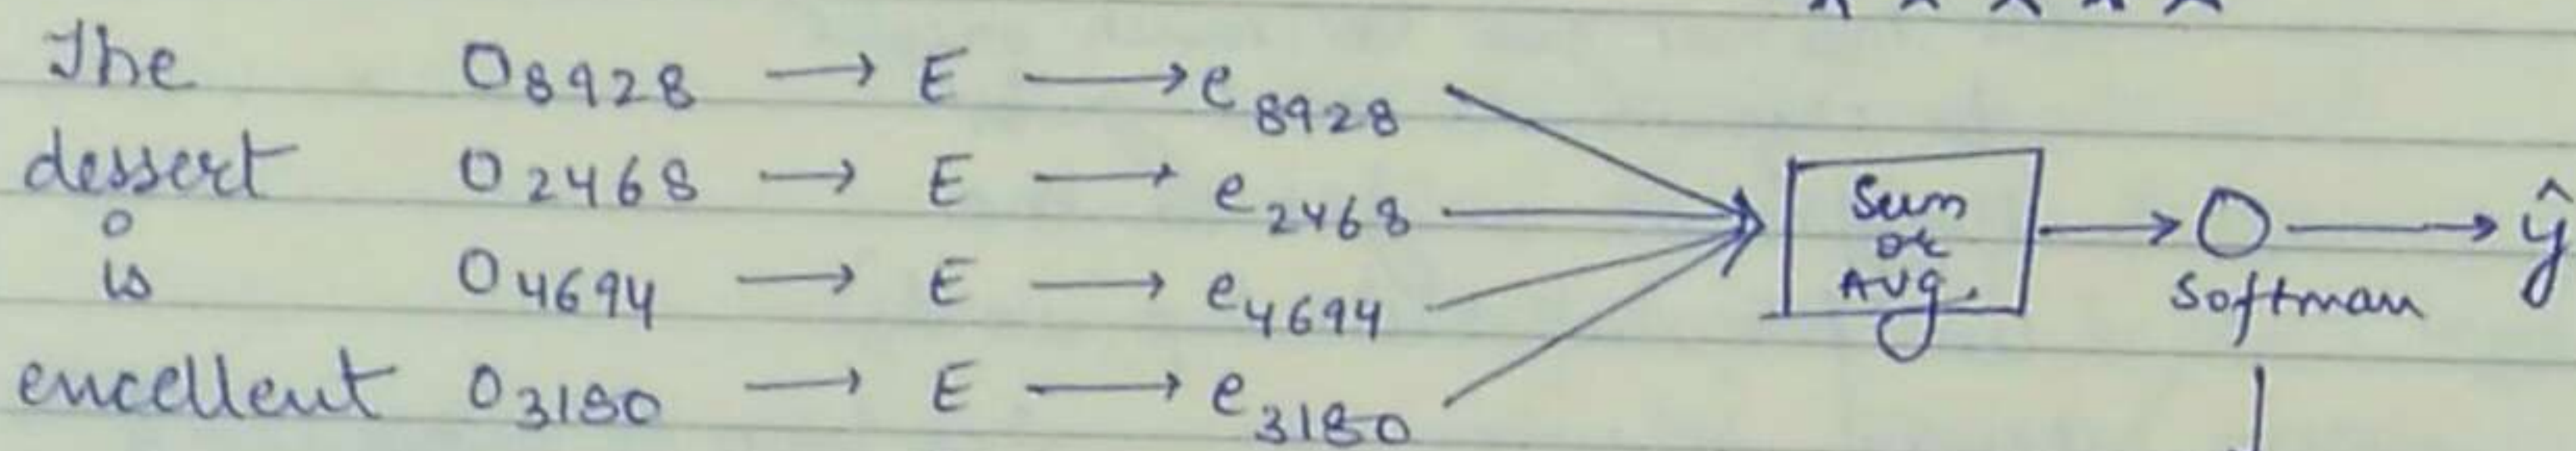 The O8928 → E → e8928
dessert O2468 → E → e2468
is O4694 → E → e4694
excellent O3180 → E → e3180
Sum
or
Avg.
→ O → ŷ
Softmax